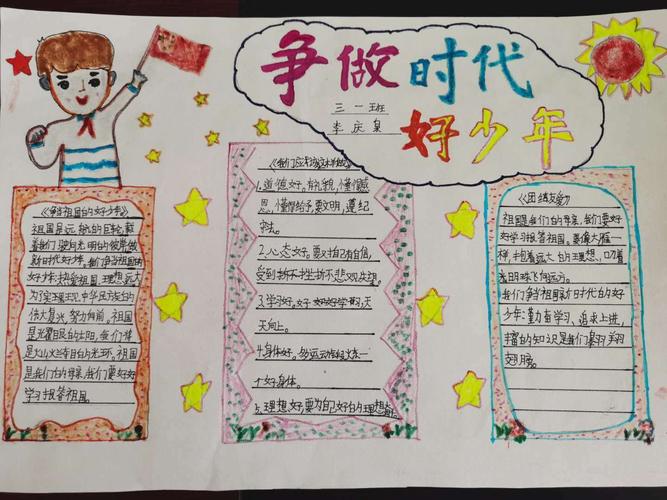 争做时代
好少年
三一班
李庆
《争当祖国的好少年》
祖国是远航的巨轮,载
着我们驶向光明的彼岸做
新时代好少年。我们争当祖国的
好少年:热爱祖国,理想远大
为了实现中华民族的
伟大复兴,努力向前。祖国
是光耀目的太阳,我们
是火山火的光环。祖国
是我们的母亲,我们要好好
学习报答祖国。
《我们应该这样做》
1.道德好。有礼貌,懂得感
恩,懂得给予,要文明,遵纪
守法。
2.心态好。要对自己有自信,
受到挫折不悲观失望。
3.学习好。好好学习,天
天向上。
4.身体好。多运动 炼一
个好身体。
5.理想好,要为自己好的理想
《团结友爱》
祖国是我们的母亲,我们要好
好学习报答祖国。要像大雁一
样,抱着远大的理想、叼着
光明珠飞向远方。
我们争当祖国新时代的好
少年:勤奋学习、追求上进,
丰富的知识是我们羽翔
翅膀。